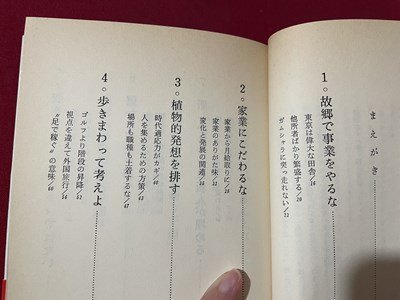 まえがき
1。故郷で事業をやるな
東京は偉大な田舎／16
他所者ばかり繁盛する／20
ガムシャラに突っ走れない／22
2。家業にこだわるな
家業から月給取りに／28
家業のありがた味／32
変化と発展の関連／35
3。植物的発想を排す
時代適応力がカギ／40
人を集めるための方策／43
場所も職種も土着するな／47
4。歩きまわって考えよ
ゴルフより階段の昇降／52
視点を違えて外国旅行／56
“足で稼ぐ”の意味／60